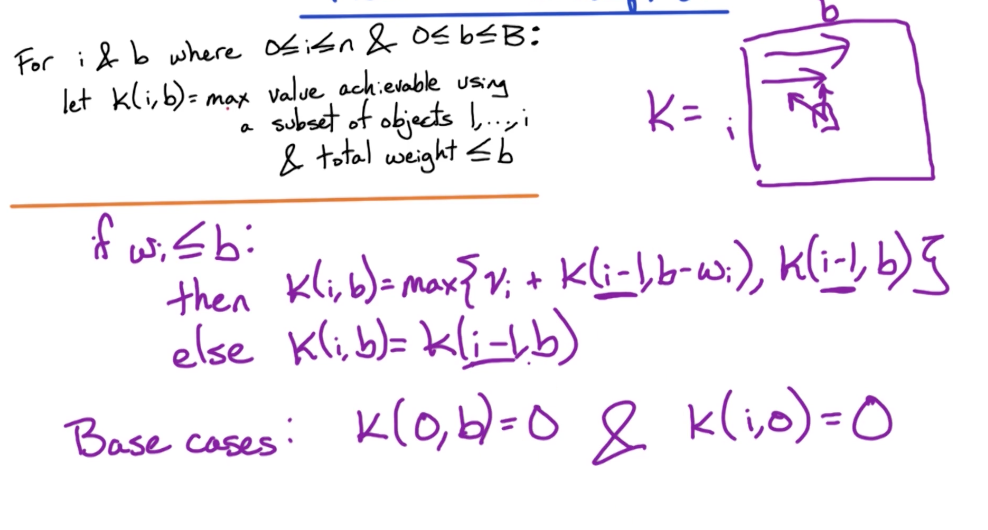 For i & b where 0≤i≤n & 0≤b≤B:
let K(i,b)= max value achievable using
a subset of objects 1,...,i
& total weight ≤b
b
K= i
if wᵢ≤b:
then K(i,b)=max{vᵢ + K(i-1,b-wᵢ), K(i-1,b)}
else K(i,b)= K(i-1,b)
Base cases: K(0,b)=0 & K(i,0)=0